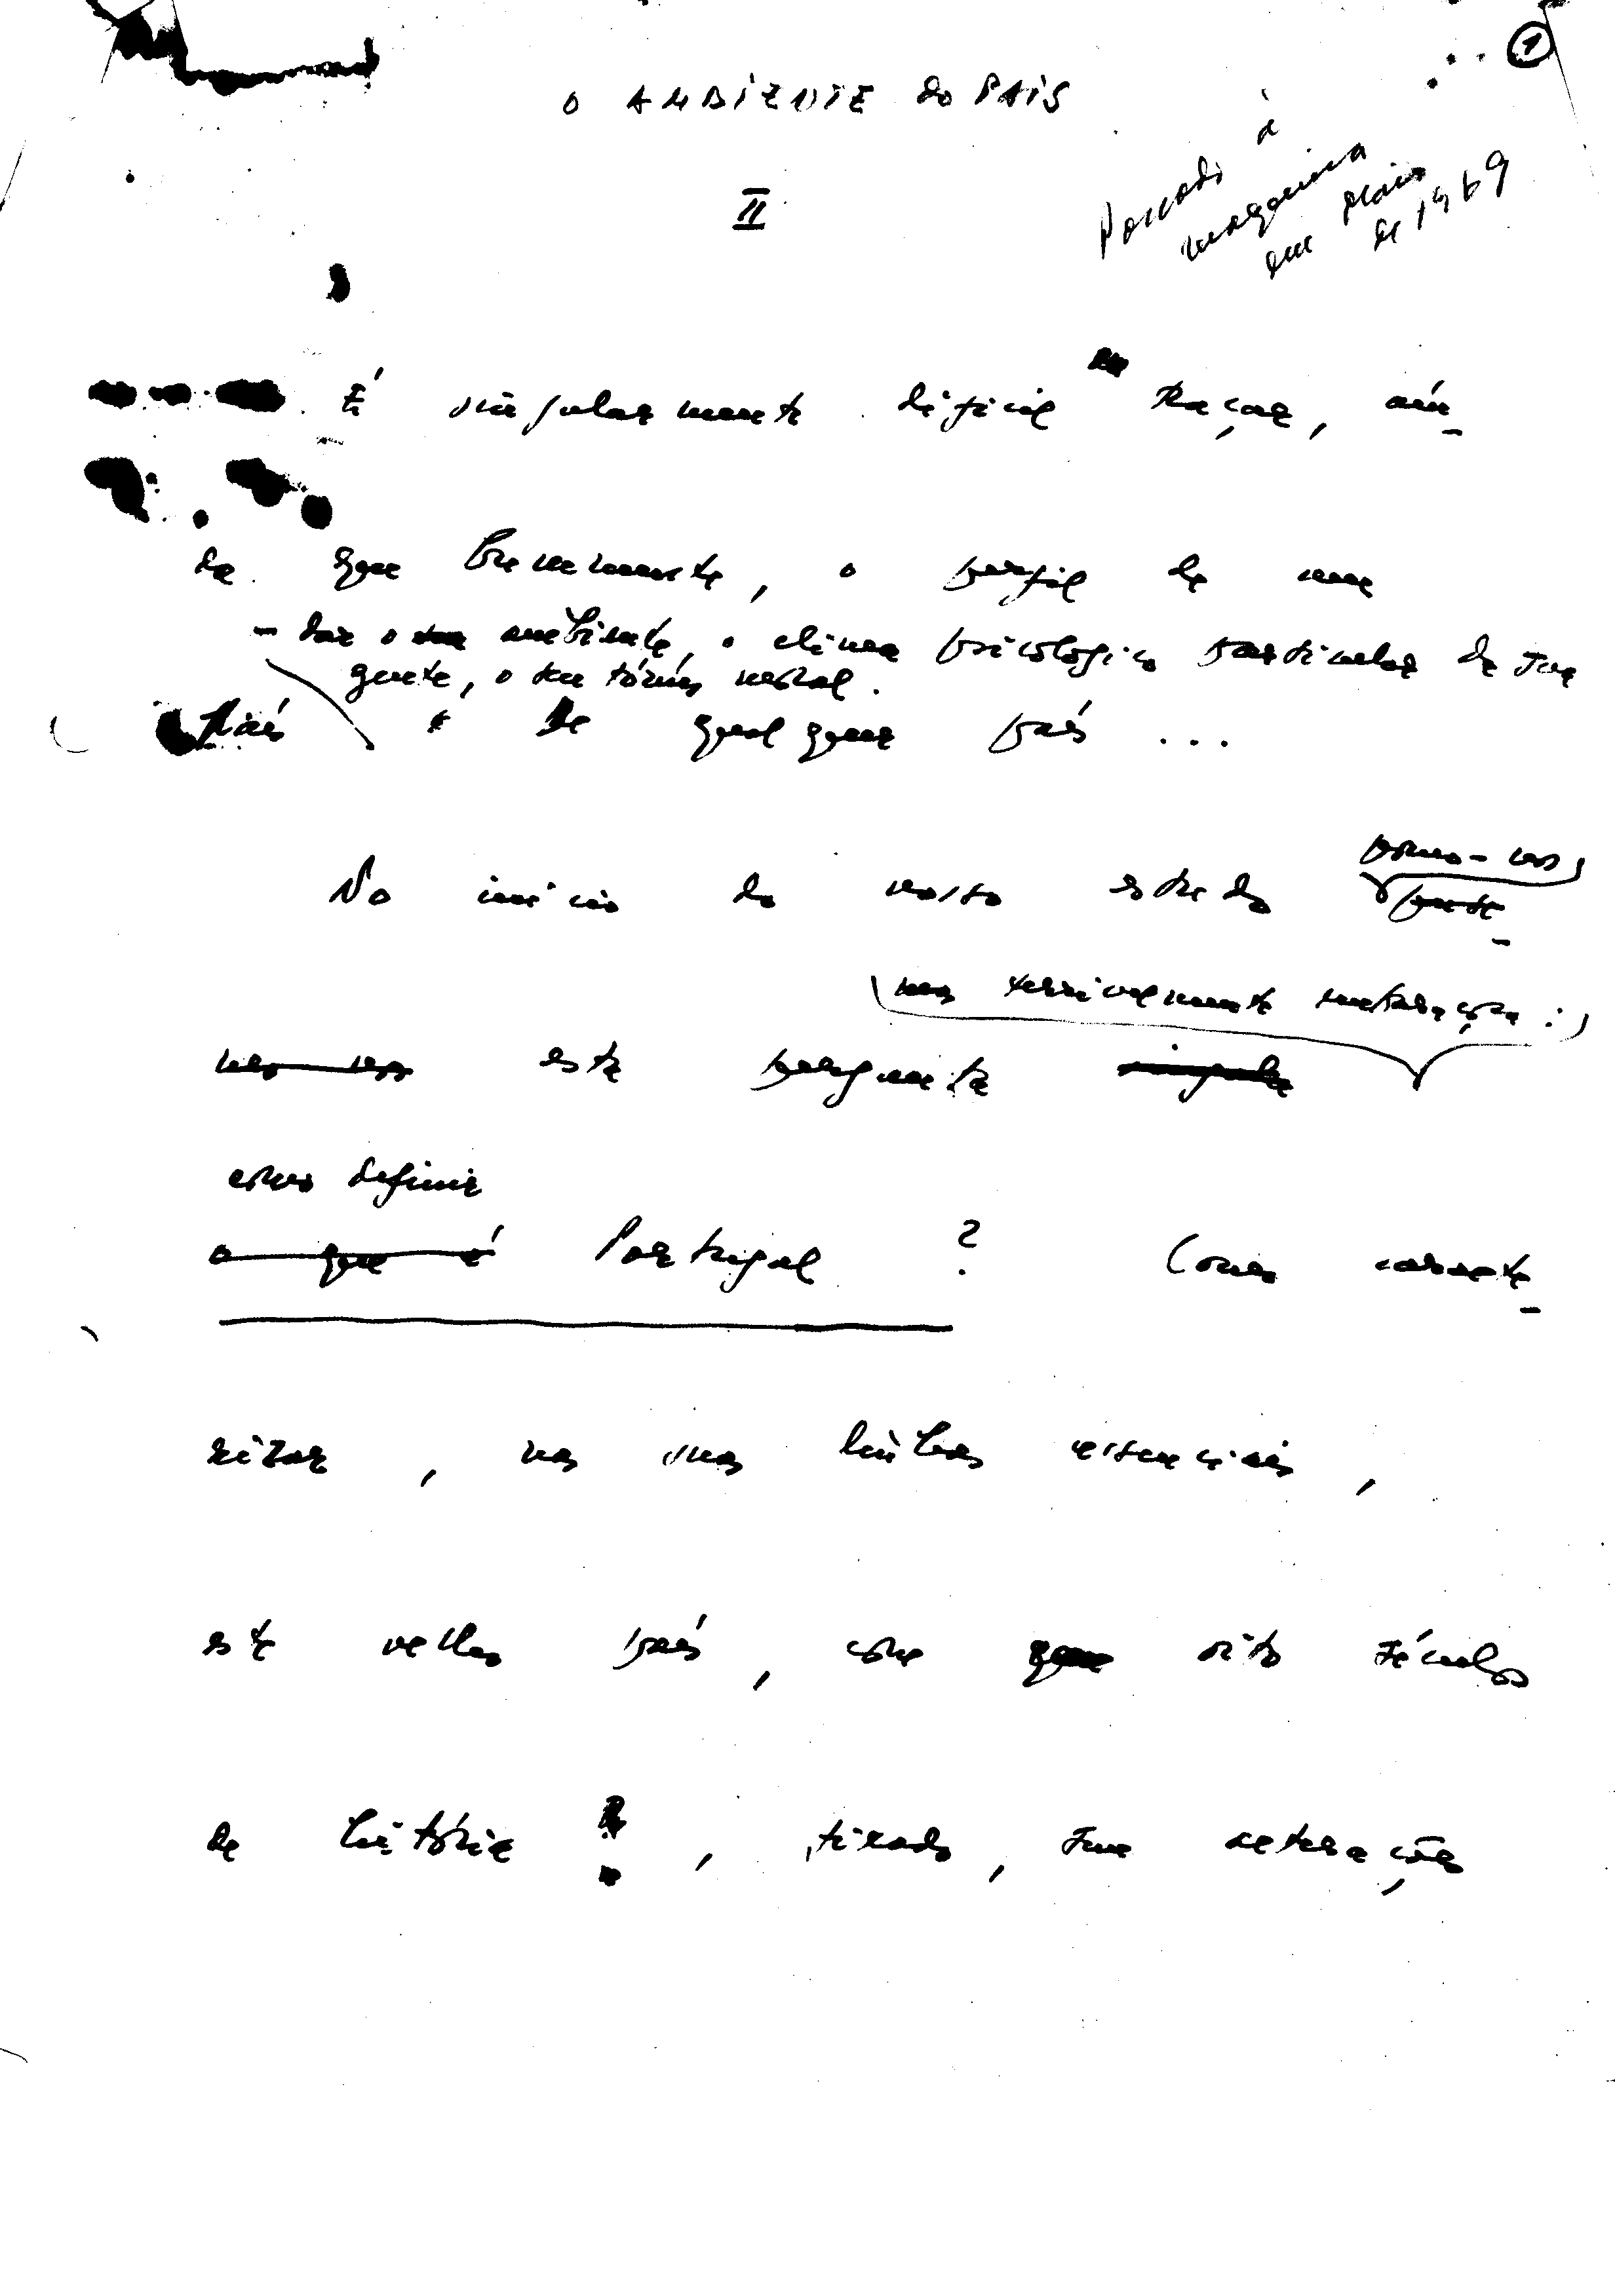 1
O AMBIENTE DO PAÍS
Passado à
máquina
em Maio
de 1969
II
É singularmente difícil traçar, ain-
da que brevemente, o perfil de um
- dar o ambiente, o clima psicológico particular da sua
gente, o seu tónus vital.
País de qualquer país ...
põem-nos
No início do nosso estudo
mas terrivelmente
esta pergunta
como definir
o que é Portugal ? Como caracte-
rizar, nas suas linhas essenciais,
este velho país, com oito séculos
de história, situado, sem alterações